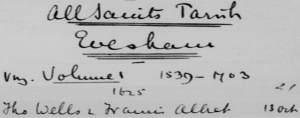 All Saints Parish
Evesham
Volume 1 1539-1703
1625
21
Tho Wells & Francis 13 Oct